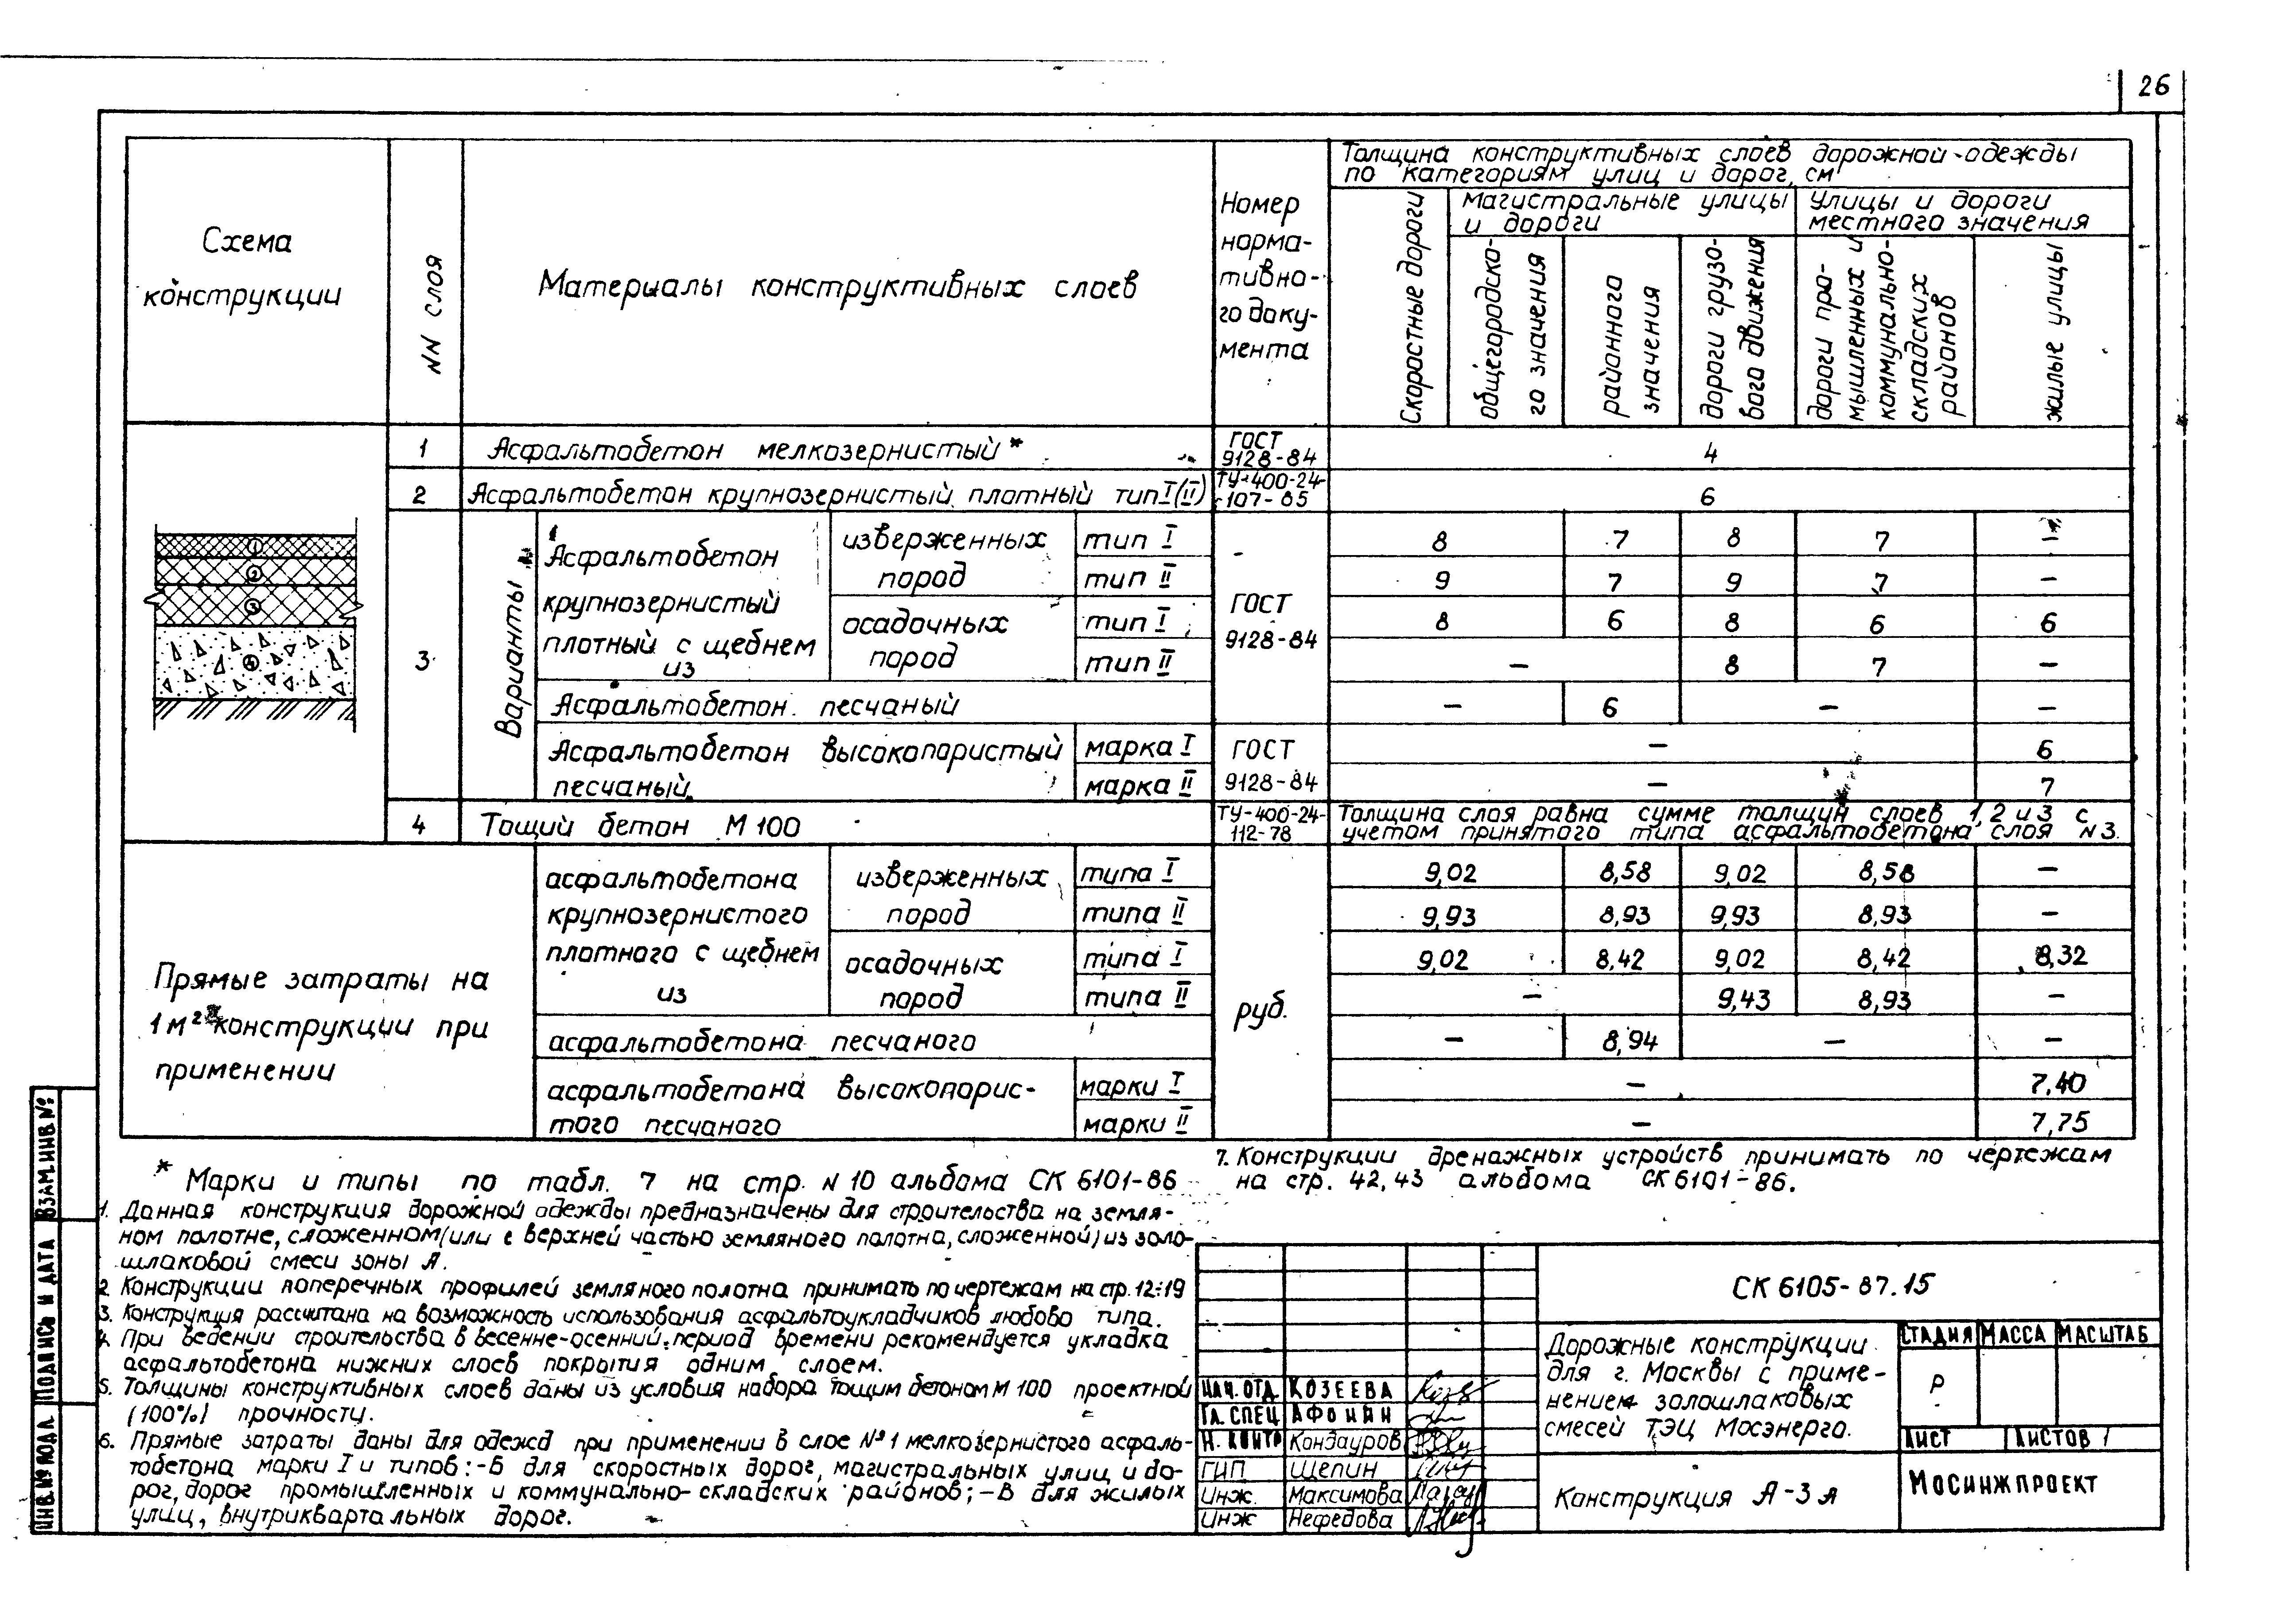 26
Схема
конструкции
NN слоя
Материалы конструктивных слоев
Номер
норма-
тивно-
го доку-
мента
Толщина конструктивных слоев дорожной одежды
по категориям улиц и дорог, см
Скоростные дороги
Магистральные улицы
и дороги
Улицы и дороги
местного значения
общегородско-
го значения
районного
значения
дороги грузо-
вого движения
дороги про-
мышленных и
коммунально-
складских
районов
жилые улицы
1 Асфальтобетон мелкозернистый * ГОСТ 9128-84 4
2 Асфальтобетон крупнозернистый плотный тип I (II) ТУ-400-24-107-85 6
3
Варианты
Асфальтобетон
крупнозернистый
плотный с щебнем
из
изверженных
пород
осадочных
пород
ГОСТ
9128-84
тип I 8 7 8 7 –
тип II 9 7 9 7 –
тип I 8 6 8 6 6
тип II – 8 7 –
Асфальтобетон песчаный – 6 – –
Асфальтобетон высокопористый
песчаный
ГОСТ
9128-84
марка I – 6
марка II – 7
4 Тощий бетон М 100
ТУ-400-24-
112-78
Толщина слоя равна сумме толщин слоев 1,2 и 3 с
учетом принятого типа асфальтобетона слоя N3.
1
2
3
4
Прямые затраты на
1м² конструкции при
применении
асфальтобетона
крупнозернистого
плотного с щебнем
из
изверженных
пород
осадочных
пород
руб.
типа I 9,02 8,58 9,02 8,58 –
типа II 9,93 8,93 9,93 8,93 –
типа I 9,02 8,42 9,02 8,42 8,32
типа II – 9,43 8,93 –
асфальтобетона песчаного – 8,94 – –
асфальтобетона высокопорис-
того песчаного
марки I – 7,40
марки II – 7,75
* Марки и типы по табл. 7 на стр. N 10 альбома СК 6101-86
1. Данная конструкция дорожной одежды предназначены для строительства на земля-
ном полотне, сложенном (или с верхней частью земляного полотна, сложенной) из золо-
шлаковой смеси зоны А.
2 Конструкции поперечных профилей земляного полотна принимать по чертежам на стр. 12÷19
3. Конструкция рассчитана на возможность использования асфальтоукладчиков любово типа.
4. При ведении строительства в весенне-осенний период времени рекомендуется укладка
асфальтобетона нижних слоев покрытия одним слоем.
5. Толщины конструктивных слоев даны из условия набора тощим бетоном М 100 проектной
(100%) прочности.
6. Прямые затраты даны для одежд при применении в слое №1 мелкозернистого асфаль-
тобетона марки I и типов: -Б для скоростных дорог, магистральных улиц и до-
рог, дорог промышленных и коммунально-складских районов; -В для жилых
улиц, внутриквартальных дорог.
7. Конструкции дренажных устройств принимать по чертежам
на стр. 42, 43 альбома СК 6101-86.
ВЗАМ.ИНВ №
ПОДПИСЬ И ДАТА
ИНВ.№ ПОДЛ
НАЧ. ОТД. КОЗЕЕВА
ГЛ. СПЕЦ АФОНИН
Н. КОНТР Кондауров
ГИП Щепин
Инж. Максимова
Инж Нефедова
СК 6105-87.15
Дорожные конструкции
для г. Москвы с приме-
нением золошлаковых
смесей ТЭЦ Мосэнерго.
СТАДИЯ МАССА МАСШТАБ
Р
ЛИСТ ЛИСТОВ 1
Конструкция А-3 я
МОСИНЖПРОЕКТ